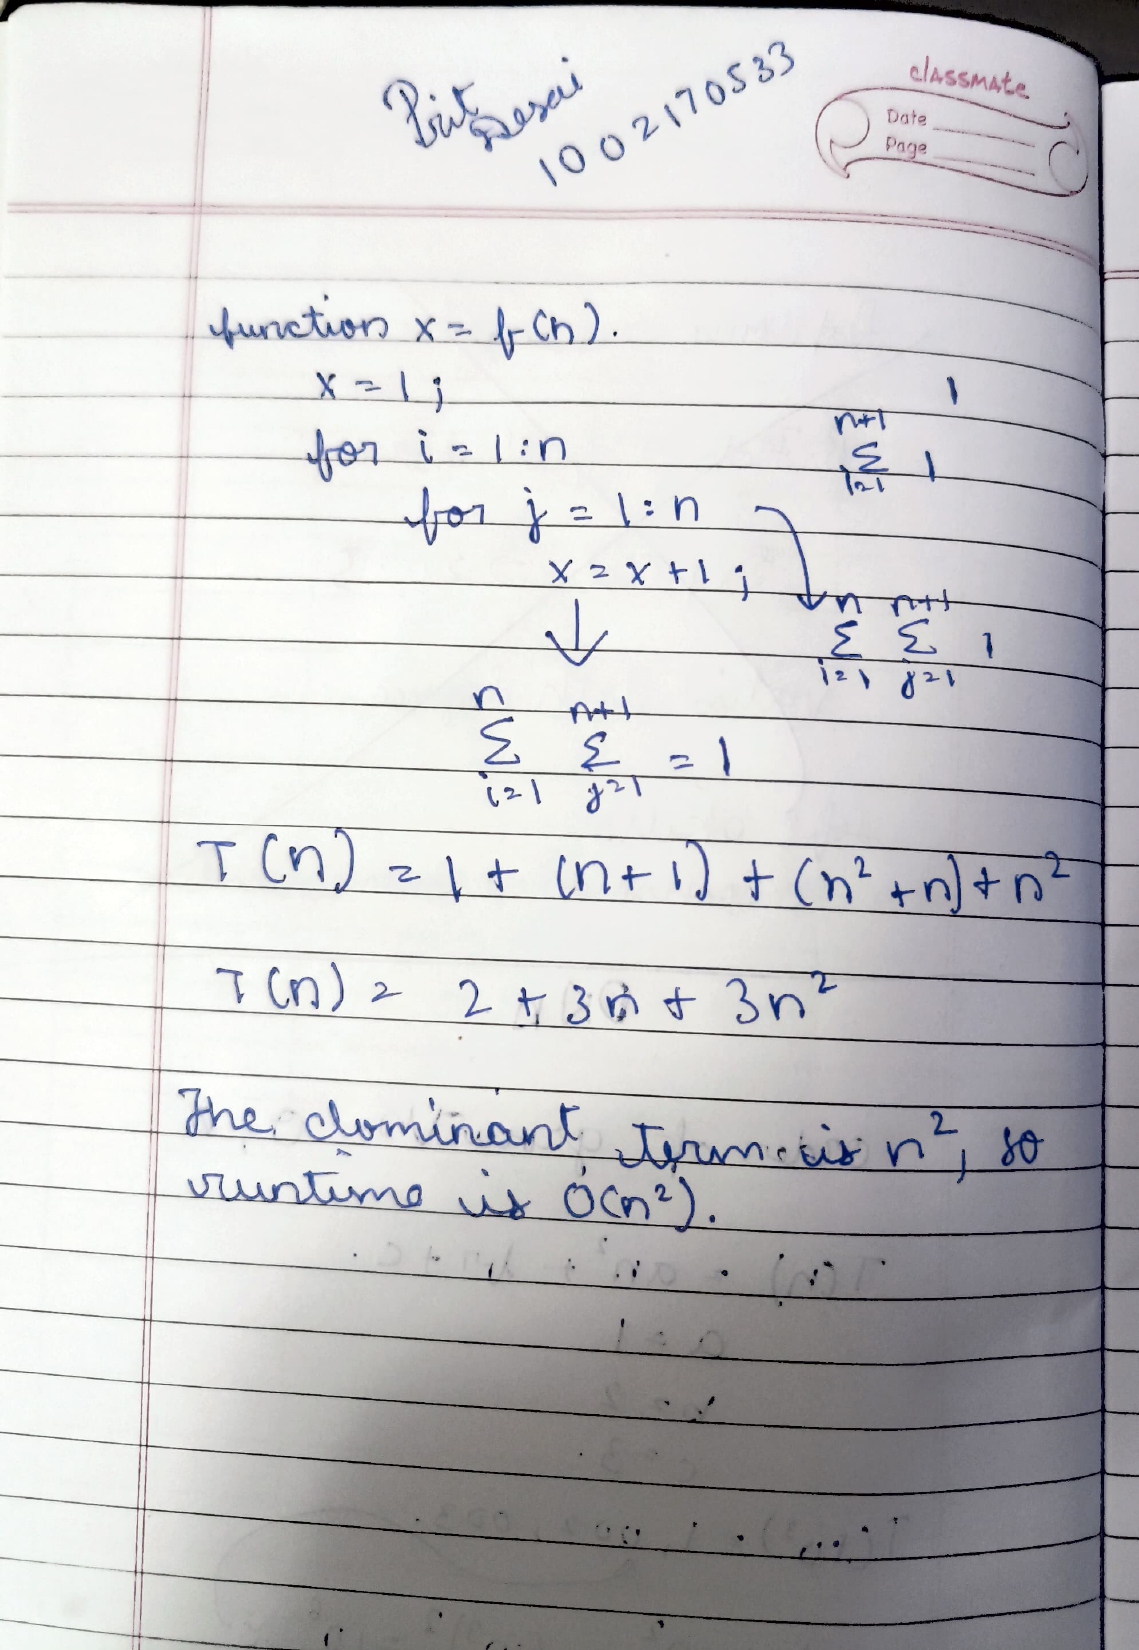 Prit Desai
1002170533
classmate
Date
Page
function x = f(n).
x = 1; 1
for i = 1:n n+1 Σ i=1 1
for j = 1:n
x = x + 1;
n Σ i=1 n+1 Σ j=1 1
n Σ i=1 n+1 Σ j=1 = 1
T(n) = 1 + (n+1) + (n² + n) + n²
T(n) = 2 + 3n + 3n²
The dominant term is n², so
runtime is O(n²).